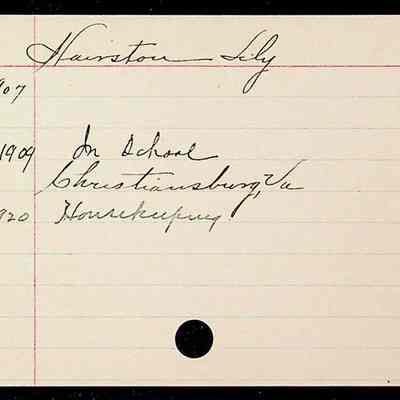 Hairston Lily
907
1909 In School
Christiansburg, Va
920 Housekeeping